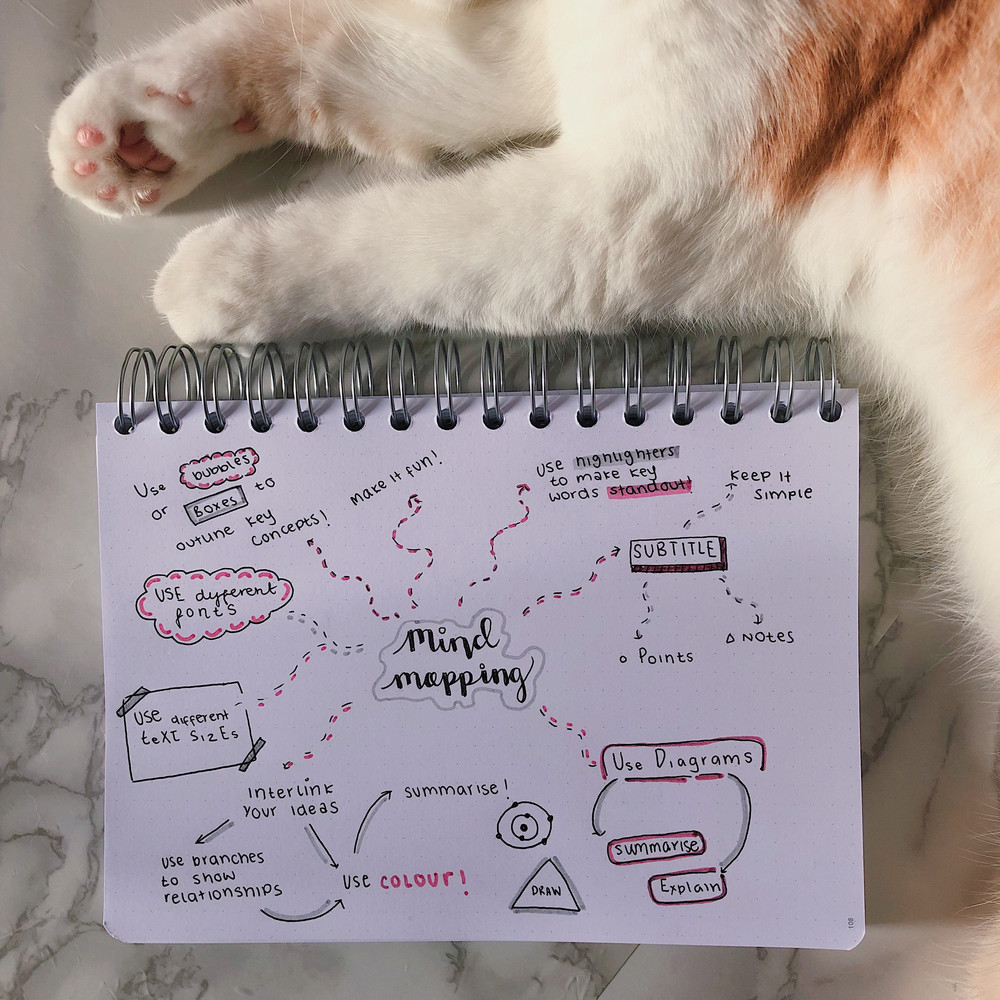 Use bubbles
or Boxes to
outline key
concepts!
Make it fun!
USE highlighters
to make key
words standout!
Keep it
Simple
SUBTITLE
o Points
Δ Notes
USE different
fonts
Mind
mapping
USE different
teXT SIZEs
Interlink
your ideas
summarise!
use branches
to show
relationships
use COLOUR!
DRAW
Use Diagrams
summarise
Explain
108